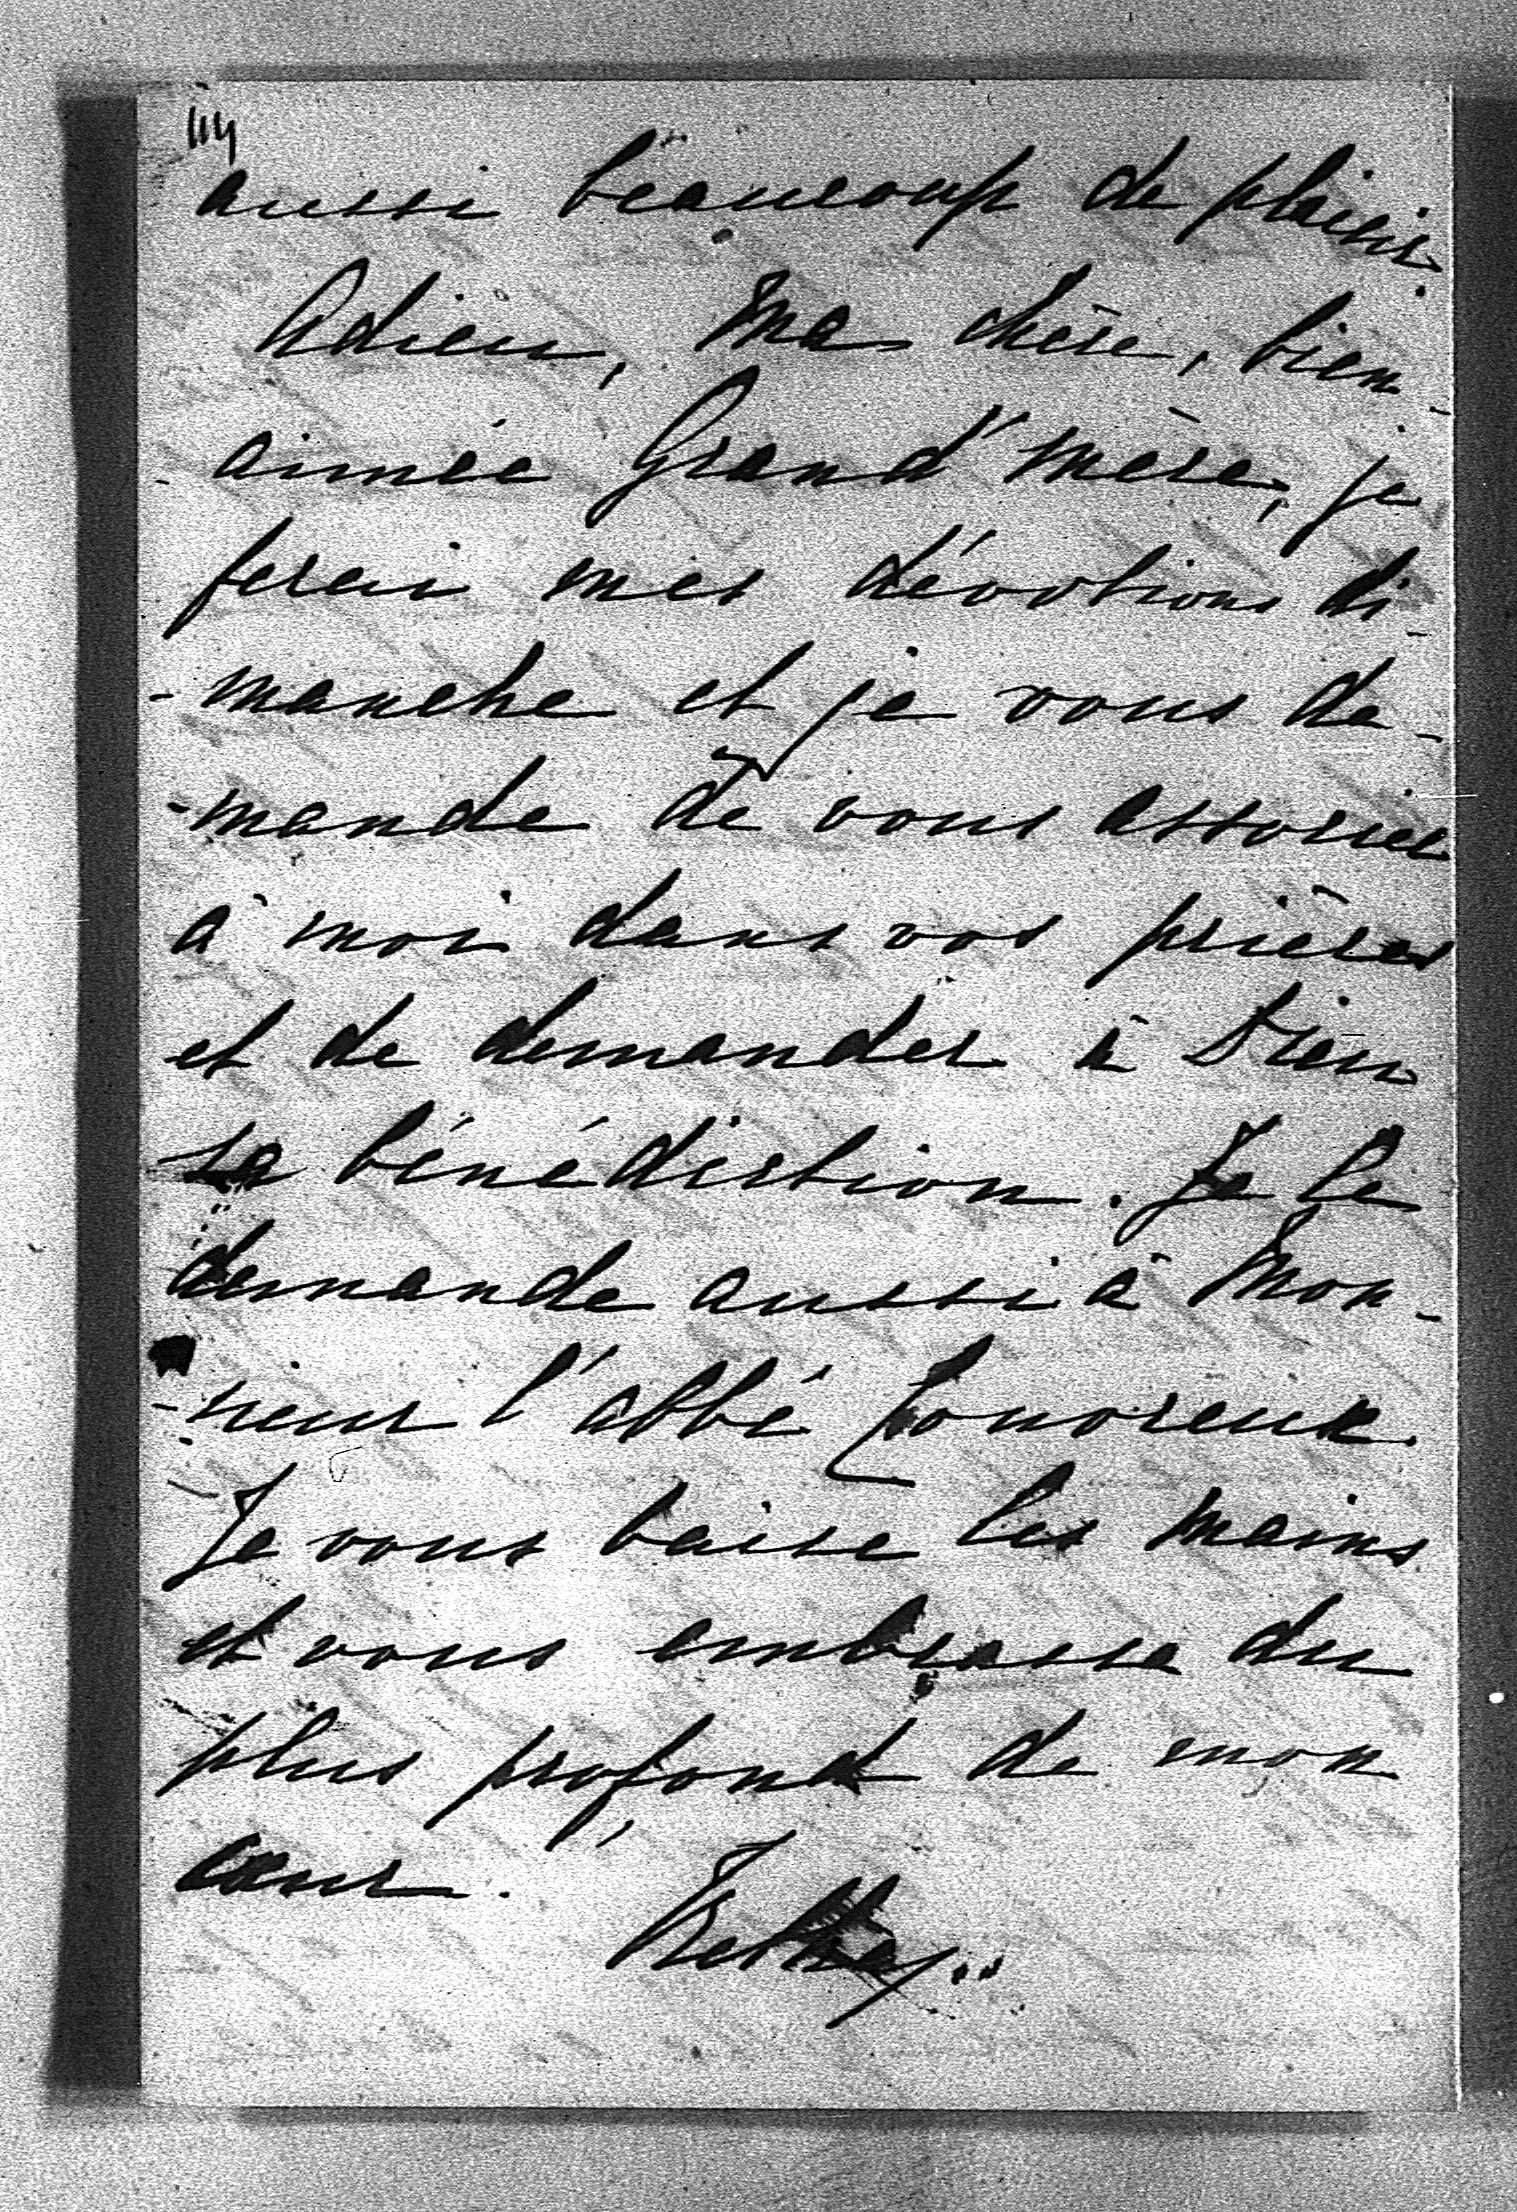 aussi beaucoup de plaisir.
Adieu, ma chère, bien-
-aimée Grand'mère, je
ferai mes dévotions di-
-manche et je vous de-
-mande de vous associer
à moi dans vos prières
et de demander à Dieu
sa bénédiction. Je le
demande aussi à Mon-
-sieur l'abbé
Je vous baise les mains
et vous embrasse du
plus profond de mon
cœur.